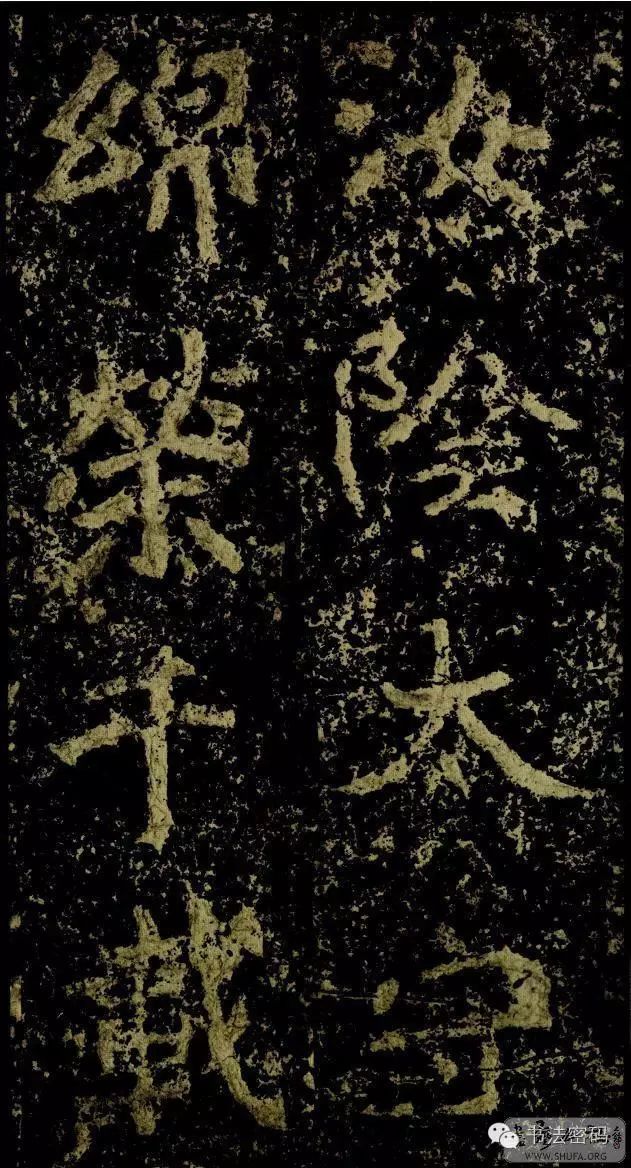 汝陰太守
綿榮千載
书法密码
WWW.SHUFA.ORG